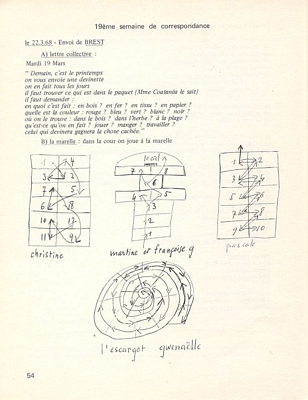 19ème semaine de correspondance
le 22.3.68 - Envoi de BREST
A) lettre collective :
Mardi 19 Mars
" Demain, c'est le printemps
on vous envoie une devinette
on en fait tous les jours
il faut trouver ce qui est dans le paquet (Mme Coatanéa le sait)
il faut demander :
en quoi c'est fait : en bois ? en fer ? en tissu ? en papier ?
quelle est la couleur : rouge ? bleu ? vert ? blanc ? noir ?
où on le trouve : dans le bois ? dans l'herbe ? à la plage ?
qu'est-ce qu'on en fait ? jouer ? manger ? travailler ?
celui qui devinera gagnera la chose cachée."
B) la marelle : dans la cour on joue à la marelle
1 4
3 2
7 5
6 8
10 12
11 9
christine
7 8
6
4 5
3
2
1
martine et françoise g
1 2
4 3
5 6
7 8
9 10
pascale
l'escargot gwenaëlle
54